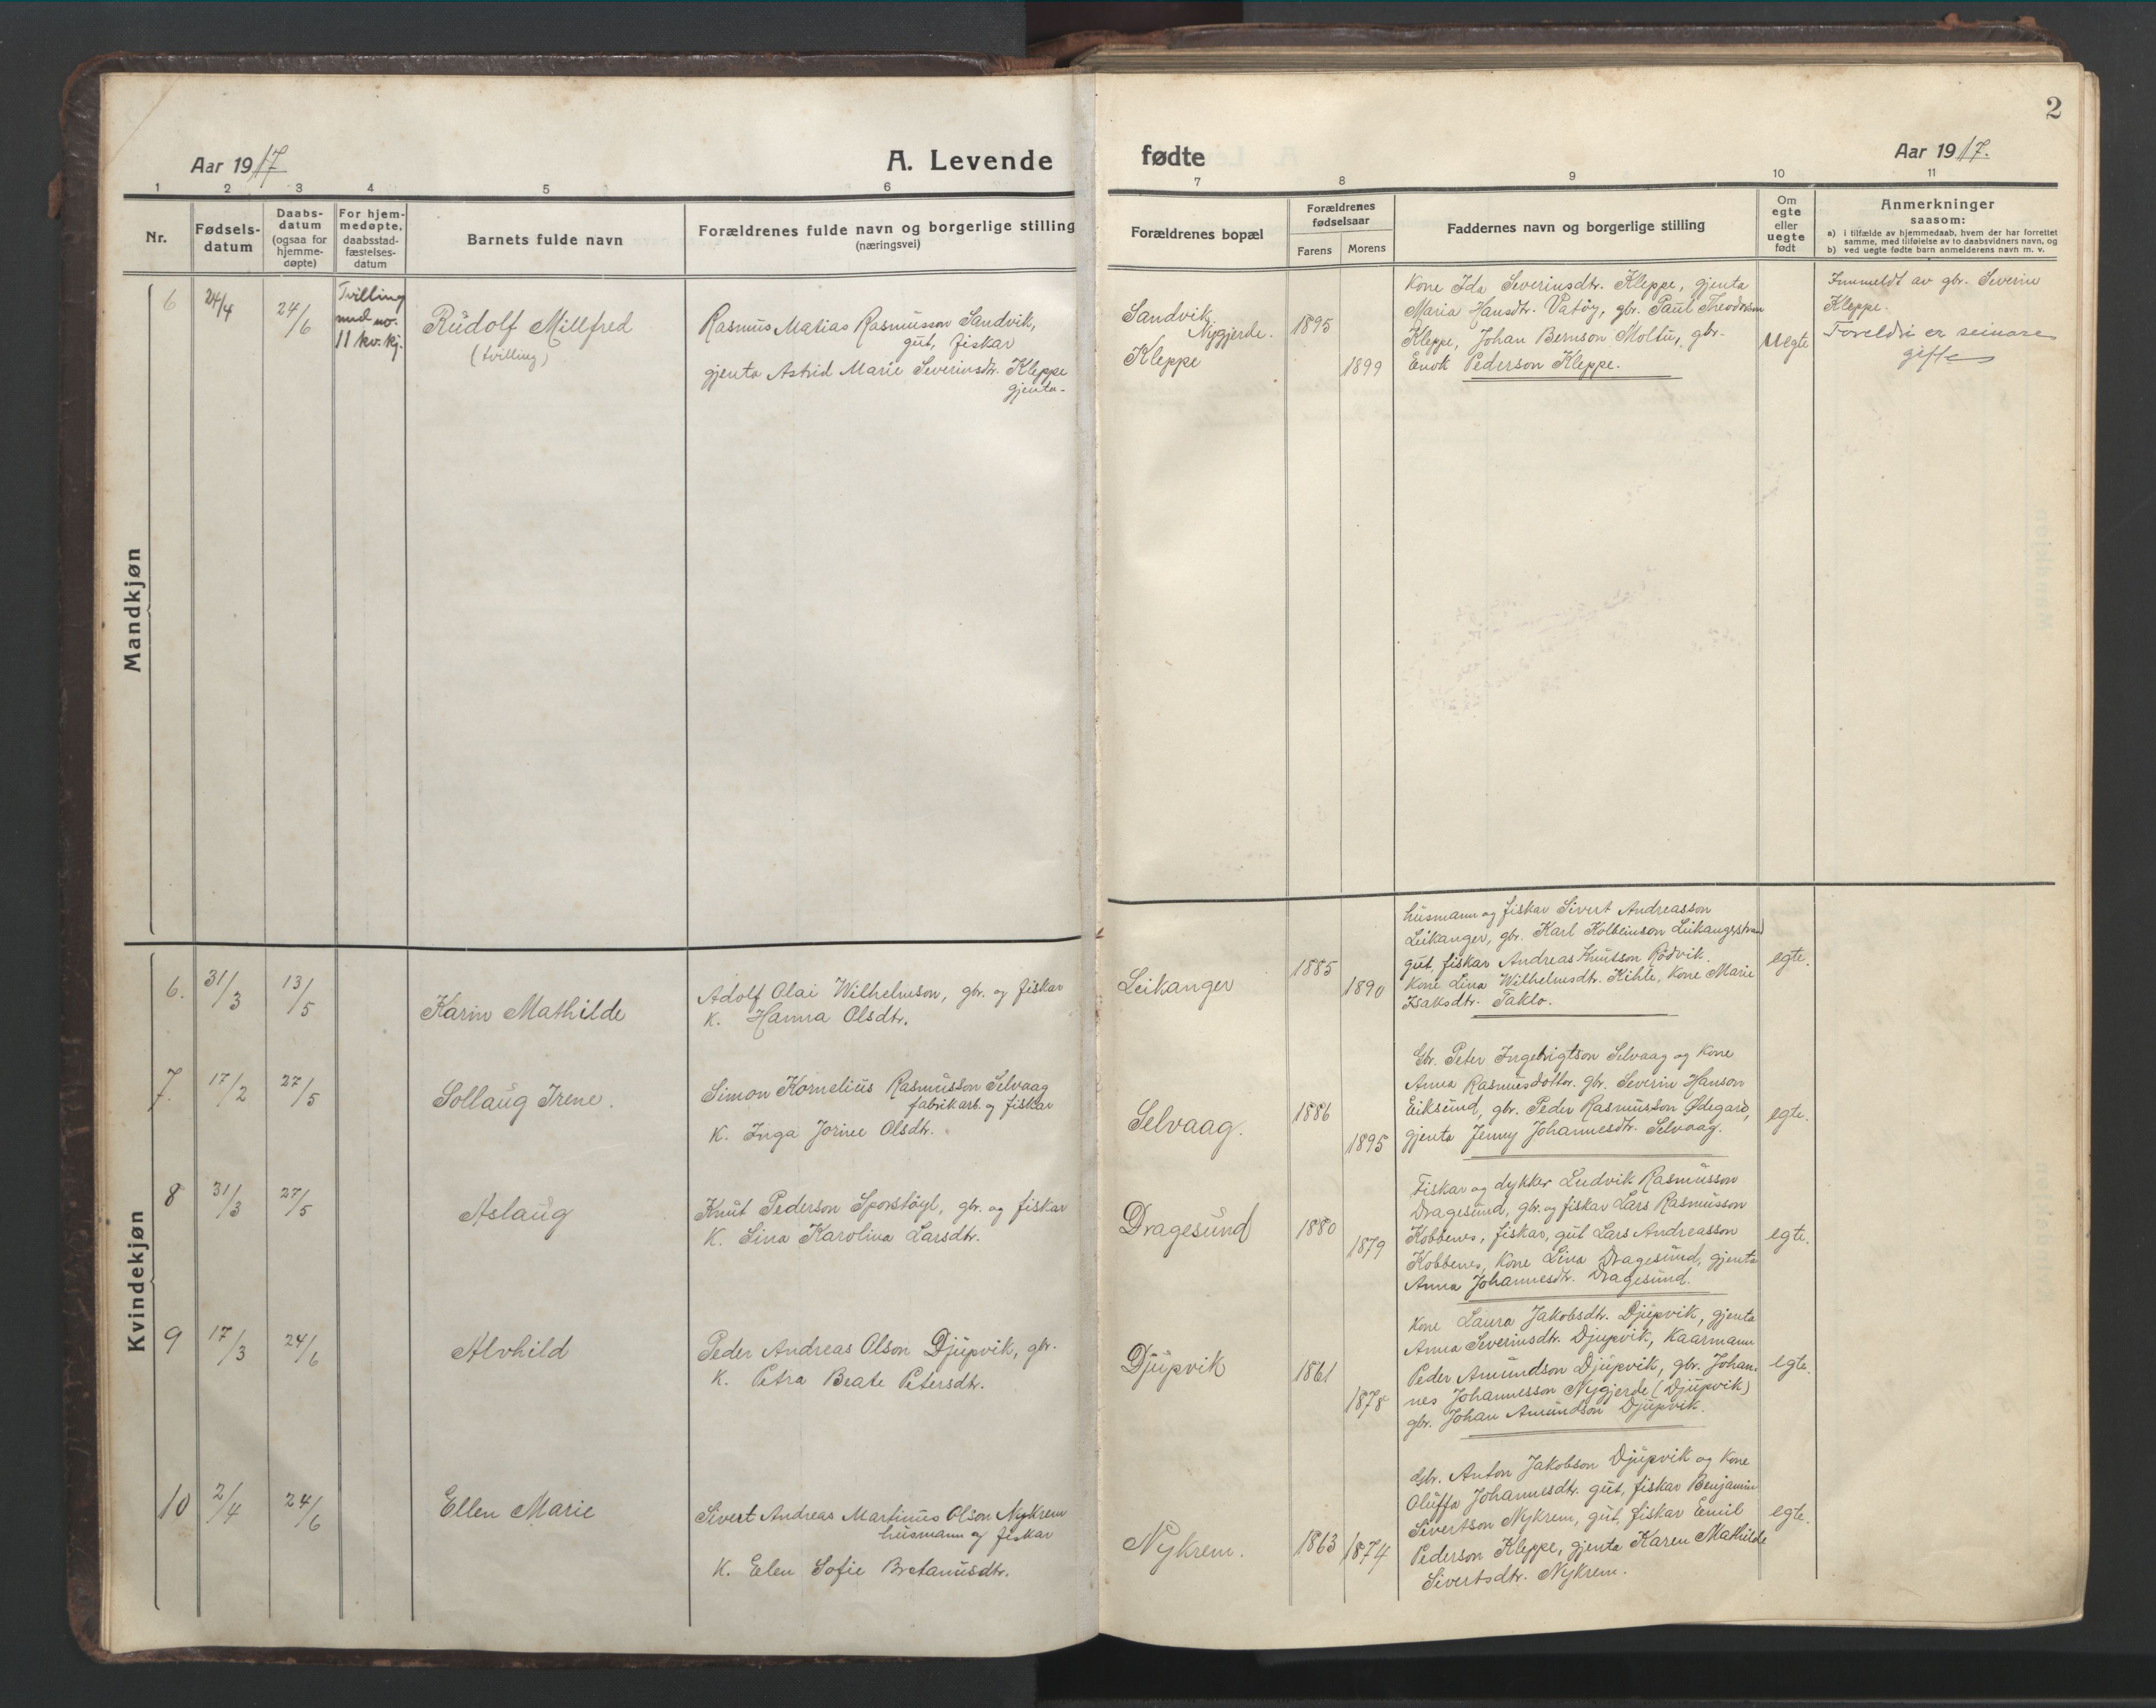 2
Aar 1917
A. Levende
fødte
Aar 1917.
1 2 3 4 5 6 7 8 9 10 11
Nr.
Fødsels-
datum
Daabs-
datum
(ogsaa for
hjemme-
døpte)
For hjem-
medøpte,
daabsstad-
fæstelses-
datum
Barnets fulde navn
Forældrenes fulde navn og borgerlige stilling
(næringsvei)
Forældrenes bopæl
Forældrenes
fødselsaar
Farens Morens
Faddernes navn og borgerlige stilling
Om
egte
eller
uegte
født
Anmerkninger
saasom:
a) i tilfælde av hjemmedaab, hvem der har forrettet
samme, med tilføielse av to daabsvidners navn, og
b) ved uegte fødte barn anmelderens navn m. v.
Mandkjøn
6 24/4 24/6
Tvilling
med no.
11 kv. kj.
Rudolf Millfred
(tvilling)
Rasmus Matias Rasmusson Sandvik,
gut, fiskar
gjenta Astrid Marie Severinsdtr. Kleppe
gjenta-
Sandvik,
Nygjerde.
Kleppe
1895
1899
Kone Ida Severinsdtr. Kleppe, gjenta
Maria Hansdtr. Vatøy, gbr. Paul Theodorson
Kleppe, Johan Bernson Moltu, gbr.
Enok Pederson Kleppe.
Uegte
Innmeldt av gbr. Severin
Kleppe.
Foreldri er seinare
gifte
Kvindekjøn
6. 31/3 13/5
Karin Mathilde
Adolf Olai Wilhelmson, gbr. og fiskar
K. Hanna Olsdtr.
Leikanger
1885
1890
husmann og fiskar Sivert Andreasson
Leikanger, gbr. Karl Kolbeinson Leikangsstrand
gut, fiskar Andreas Knutson Rödvik.
Kone Lina Wilhelmsdtr. Kihle, Kone Marie
Isaksdtr. Taklo.
egte.
7. 17/2 27/5
Sollaug Irene.
Simon Kornelius Rasmusson Selvaag
fabrikarb. og fiskar
K. Inga Jorine Olsdtr.
Selvaag.
1886
1895
Gbr. Peter Ingebrigtson Selvaag og Kone
Anna Rasmusdotter. gbr. Severin Hanson
Eiksund, gbr. Peder Rasmusson Ødegard,
gjenta Jenny Johannesdtr. Selvaag.
egte.
8 31/3 27/5
Aslaug
Knut Pederson Sporstøyl, gbr. og fiskar
K. Lina Karolina Larsdtr.
Dragesund
1880
1879
Fiskar og dykkar Ludvik Rasmusson
Dragesund, gbr. og fiskar Lars Rasmusson
Kobbenes, fiskar, gut Lars Andreasson
Kobbenes, Kone Lina Dragesund, gjenta
Anna Johannesdtr. Dragesund.
egte.
9 17/3 24/6
Alvhild
Peder Andreas Olson Djupvik, gbr.
K. Petra Beate Petersdtr.
Djupvik
1861
1878
Kone Laura Jakobsdtr. Djupvik, gjenta
Anna Severinsdtr. Djupvik, Kaarmann
Peder Amundson Djupvik, gbr. Johan-
nes Johannesson Nygjerde (Djupvik)
gbr. Johan Amundson Djupvik.
egte.
10 2/4 24/6
Ellen Marie
Sivert Andreas Martinus Olson Nykrem
husmann og fiskar
K. Elen Sofie Bretanusdtr.
Nykrem.
1863 1874
Gbr. Anton Jakobson Djupvik og Kone
Oluffa Johannesdtr. gut, fiskar Benjamin
Sivertson Nykrem, gut, fiskar Emil
Pederson Kleppe, gjenta Karen Mathilde
Sivertsdtr. Nykrem.
egte.